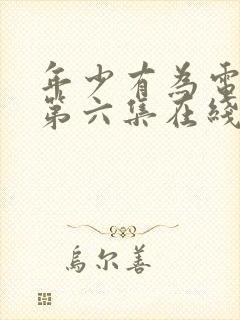 年少有為電
第六集在綫
烏尔善